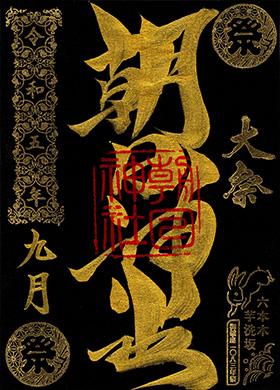 祭
大祭
六本木
芋洗坂
朝日神社
朝日神社
令和五年
九月
祭